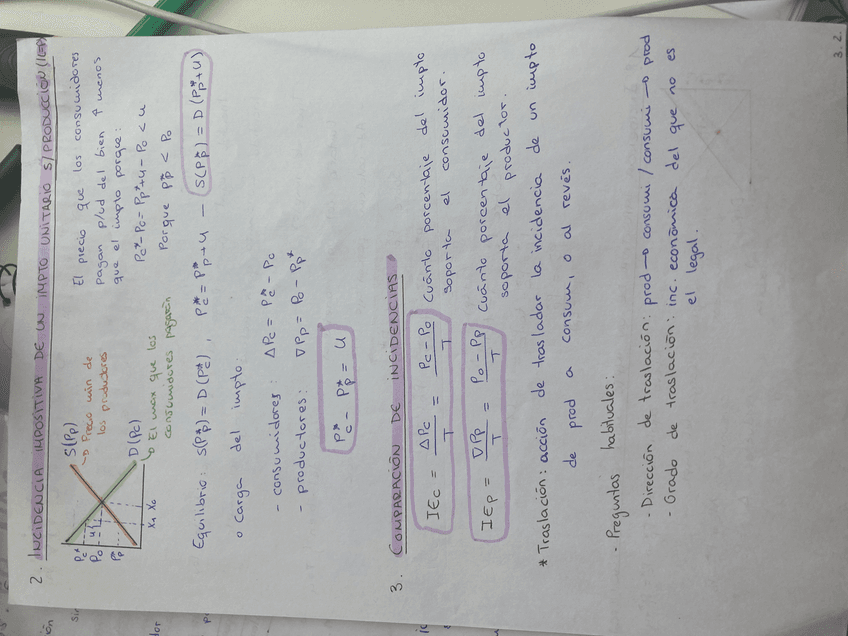 2. INCIDENCIA IMPOSITIVA DE UN IMPTO UNITARIO S/PRODUCCIÓN (IEP)
S(Pp)
Precio min de
los productores
D(Pc)
El max que los
consumidores pagarían
Pc*
Po
Pp*
u
X1 Xo
El precio que los consumidores
pagan p/ud del bien ↑ menos
que el impto porque:
Pc* - Po = Pp* + u - Po < u
Porque Pp* < Po
Equilibrio: S(Pp*) = D(Pc*) , Pc* = Pp* + u — S(Pp*) = D(Pp* + u)
o Carga del impto:
- consumidores: ΔPc = Pc* - Pc
- productores: ∇Pp = Po - Pp*
Pc* - Pp* = u
3. COMPARACIÓN DE INCIDENCIAS
IEc = ΔPc / T = Pc - Po / T Cuánto porcentaje del impto
soporta el consumidor.
IEp = ∇Pp / T = Po - Pp / T Cuánto porcentaje del impto
soporta el productor.
* Traslación: acción de trasladar la incidencia de un impto
de prod a consum, o al revés.
- Preguntas habituales:
- Dirección de traslación: prod → consumi / consumi → prod
- Grado de traslación: inc. económica del que no es
el legal.
3.2